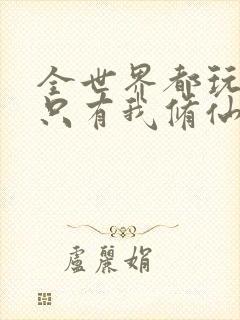 全世界都玩
只有我脩仙
盧麗娟